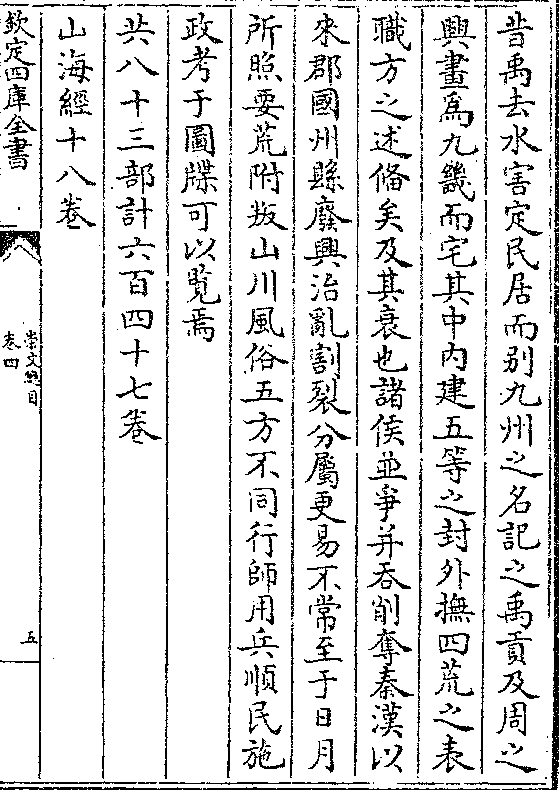 昔禹去水害定民居而别九州之名記之禹貢及周之
興畫為九畿而宅其中内建五等之封外撫四荒之表
職方之述備矣及其衰也諸侯並爭并吞削奪秦漢以
來郡國州縣廢興治亂割裂分屬更易不常至于日月
所照要荒附叛山川風俗五方不同行師用兵順民施
政考于圖牒可以覧焉
共八十三部計六百四十七卷
山海經十八卷
欽定四庫全書
崇文總目
卷四
五